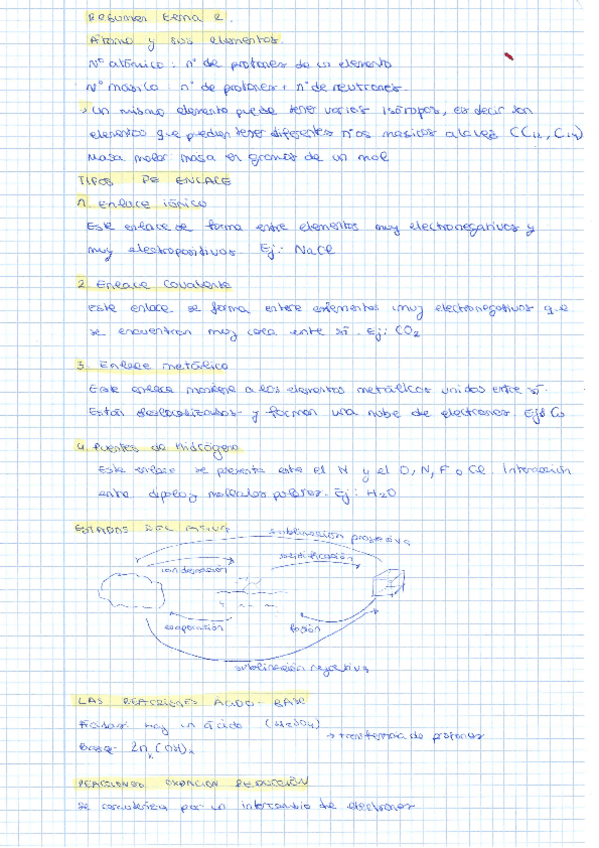 Resumen tema 2.
Átomo y sus elementos.
Nº atómico: nº de protones de un elemento
Nº másico: nº de protones + nº de neutrones.
Un mismo elemento puede tener varios isótopos, es decir son
elementos que pueden tener diferentes nºos masicos a la vez (C12, C14)
Masa molar: masa en gramos de un mol
TIPOS DE ENLACE
1. Enlace iónico
Este enlace se forma entre elementos muy electronegativos y
muy electropositivos. Ej: NaCl
2. Enlace Covalente
este enlace se forma entre elementos muy electronegativos que
se encuentran muy cerca entre sí. Ej: CO2
3. Enlace metálico
Este enlace mantiene a los elementos metálicos unidos entre sí.
Están deslocalizados y forman una nube de electrones. Ej:
4. Puentes de Hidrógeno
Este enlace se presenta entre el H y el O, N, F o Cl. Interacción
entre dipolo y moléculas polares. Ej: H2O
ESTADOS DEL
sublimación progresiva
condensación
solidificación
evaporación
fusión
sublimación regresiva
LAS REACCIONES ÁCIDO-BASE
Hay un ácido (H2SO4)
→ transferencia de protones
Base
REACCIONES OXIDACION REDUCCIÓN
se caracteriza por un intercambio de electrones